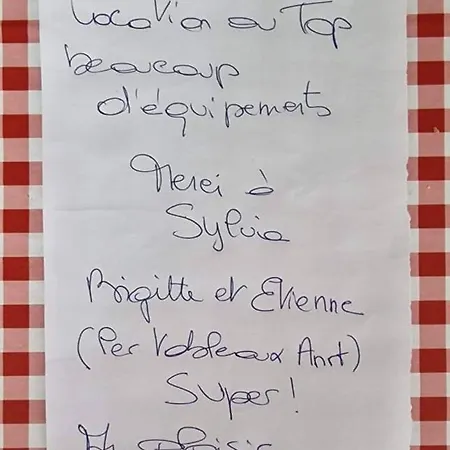 Location au Top
beaucoup
d'équipements
Merci à
Sylvie
Brigitte et Etienne
(Les tableaux Anrt)
Super!
plaisir